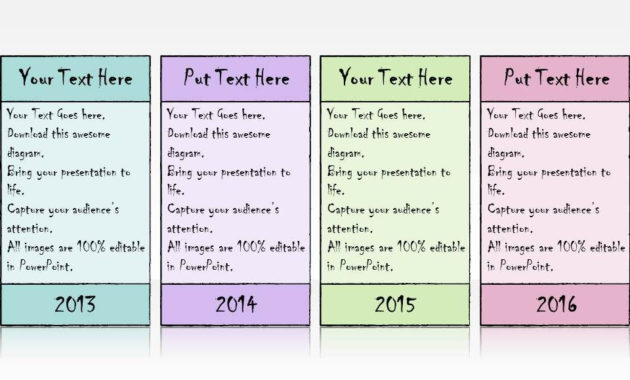 Your Text Here
Your Text Goes here.
Download this awesome
diagram.
Bring your presentation to
life.
Capture your audience's
attention.
All images are 100% editable
in PowerPoint.
2013
Put Text Here
Your Text Goes here.
Download this awesome
diagram.
Bring your presentation to
life.
Capture your audience's
attention.
All images are 100% editable
in PowerPoint.
2014
Your Text Here
Your Text Goes here.
Download this awesome
diagram.
Bring your presentation to
life.
Capture your audience's
attention.
All images are 100% editable
in PowerPoint.
2015
Put Text Here
Your Text Goes here.
Download this awesome
diagram.
Bring your presentation to
life.
Capture your audience's
attention.
All images are 100% editable
in PowerPoint.
2016